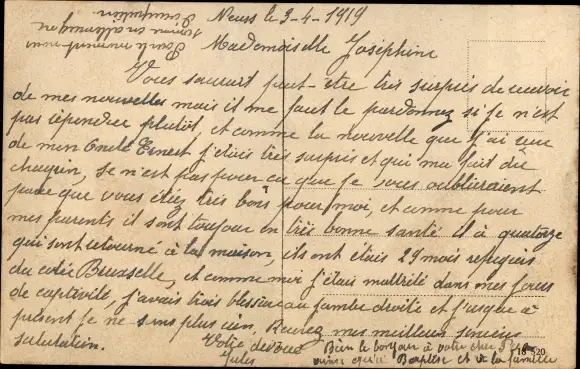 Neuss le 3-4-1919
Mademoiselle Joséphine
Vous saurait peut-être très surpris de recevoir
de mes nouvelles mais il me faut le pardonnez si je n'est
pas répendrer plutôt, et comme la nouvelle que j'ai eue
de mon Oncle Ernest j'étais très surpris et qui ma fait du
chagrin, se n'est pas pour ca que je vous oublieraient
parce que vous étiez très bons pour moi, et comme pour
mes parents il sont toujour en très bonne santé il à quatorze
qui sont retourné à la maison, ils ont étais 29 mois refugiés
du coté Bruxselle, et comme moi j'étais maltrité dans mes jours
de captivité, j'avais trois blessure au jambe droite et jusque à
présent je ne sens plus rien, Recevez mes meilleur sincère
salutation.
Votre dévoué
Jules
Bien le bonjour à votre cher
qu'à Baptise et à la famille
18 520
Pour le moment nous
somme en allemagne